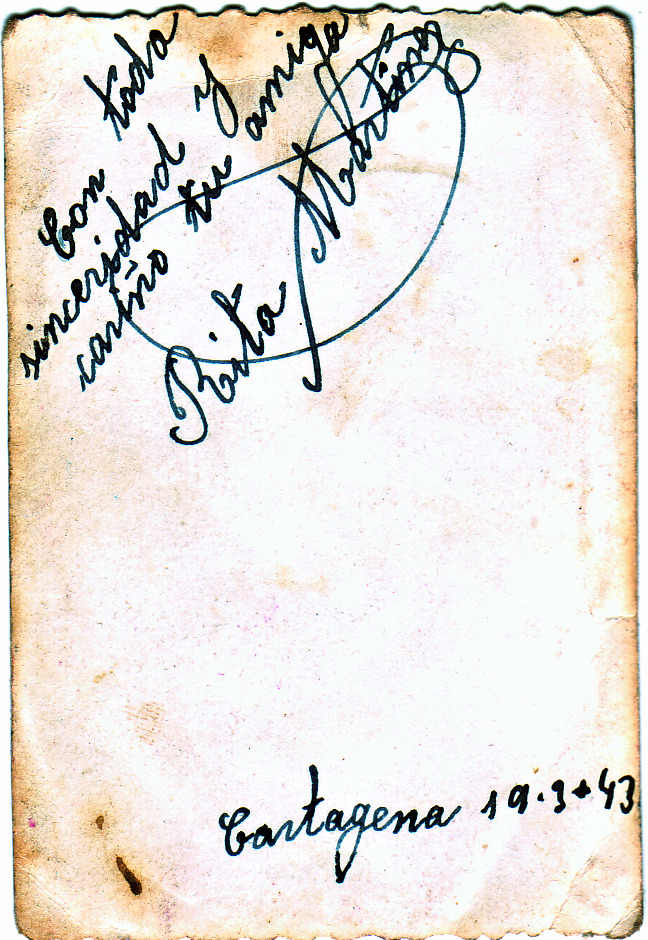 Con toda
sinceridad y
cariño tu amiga
Rita Martínez
Cartagena 19·3·43